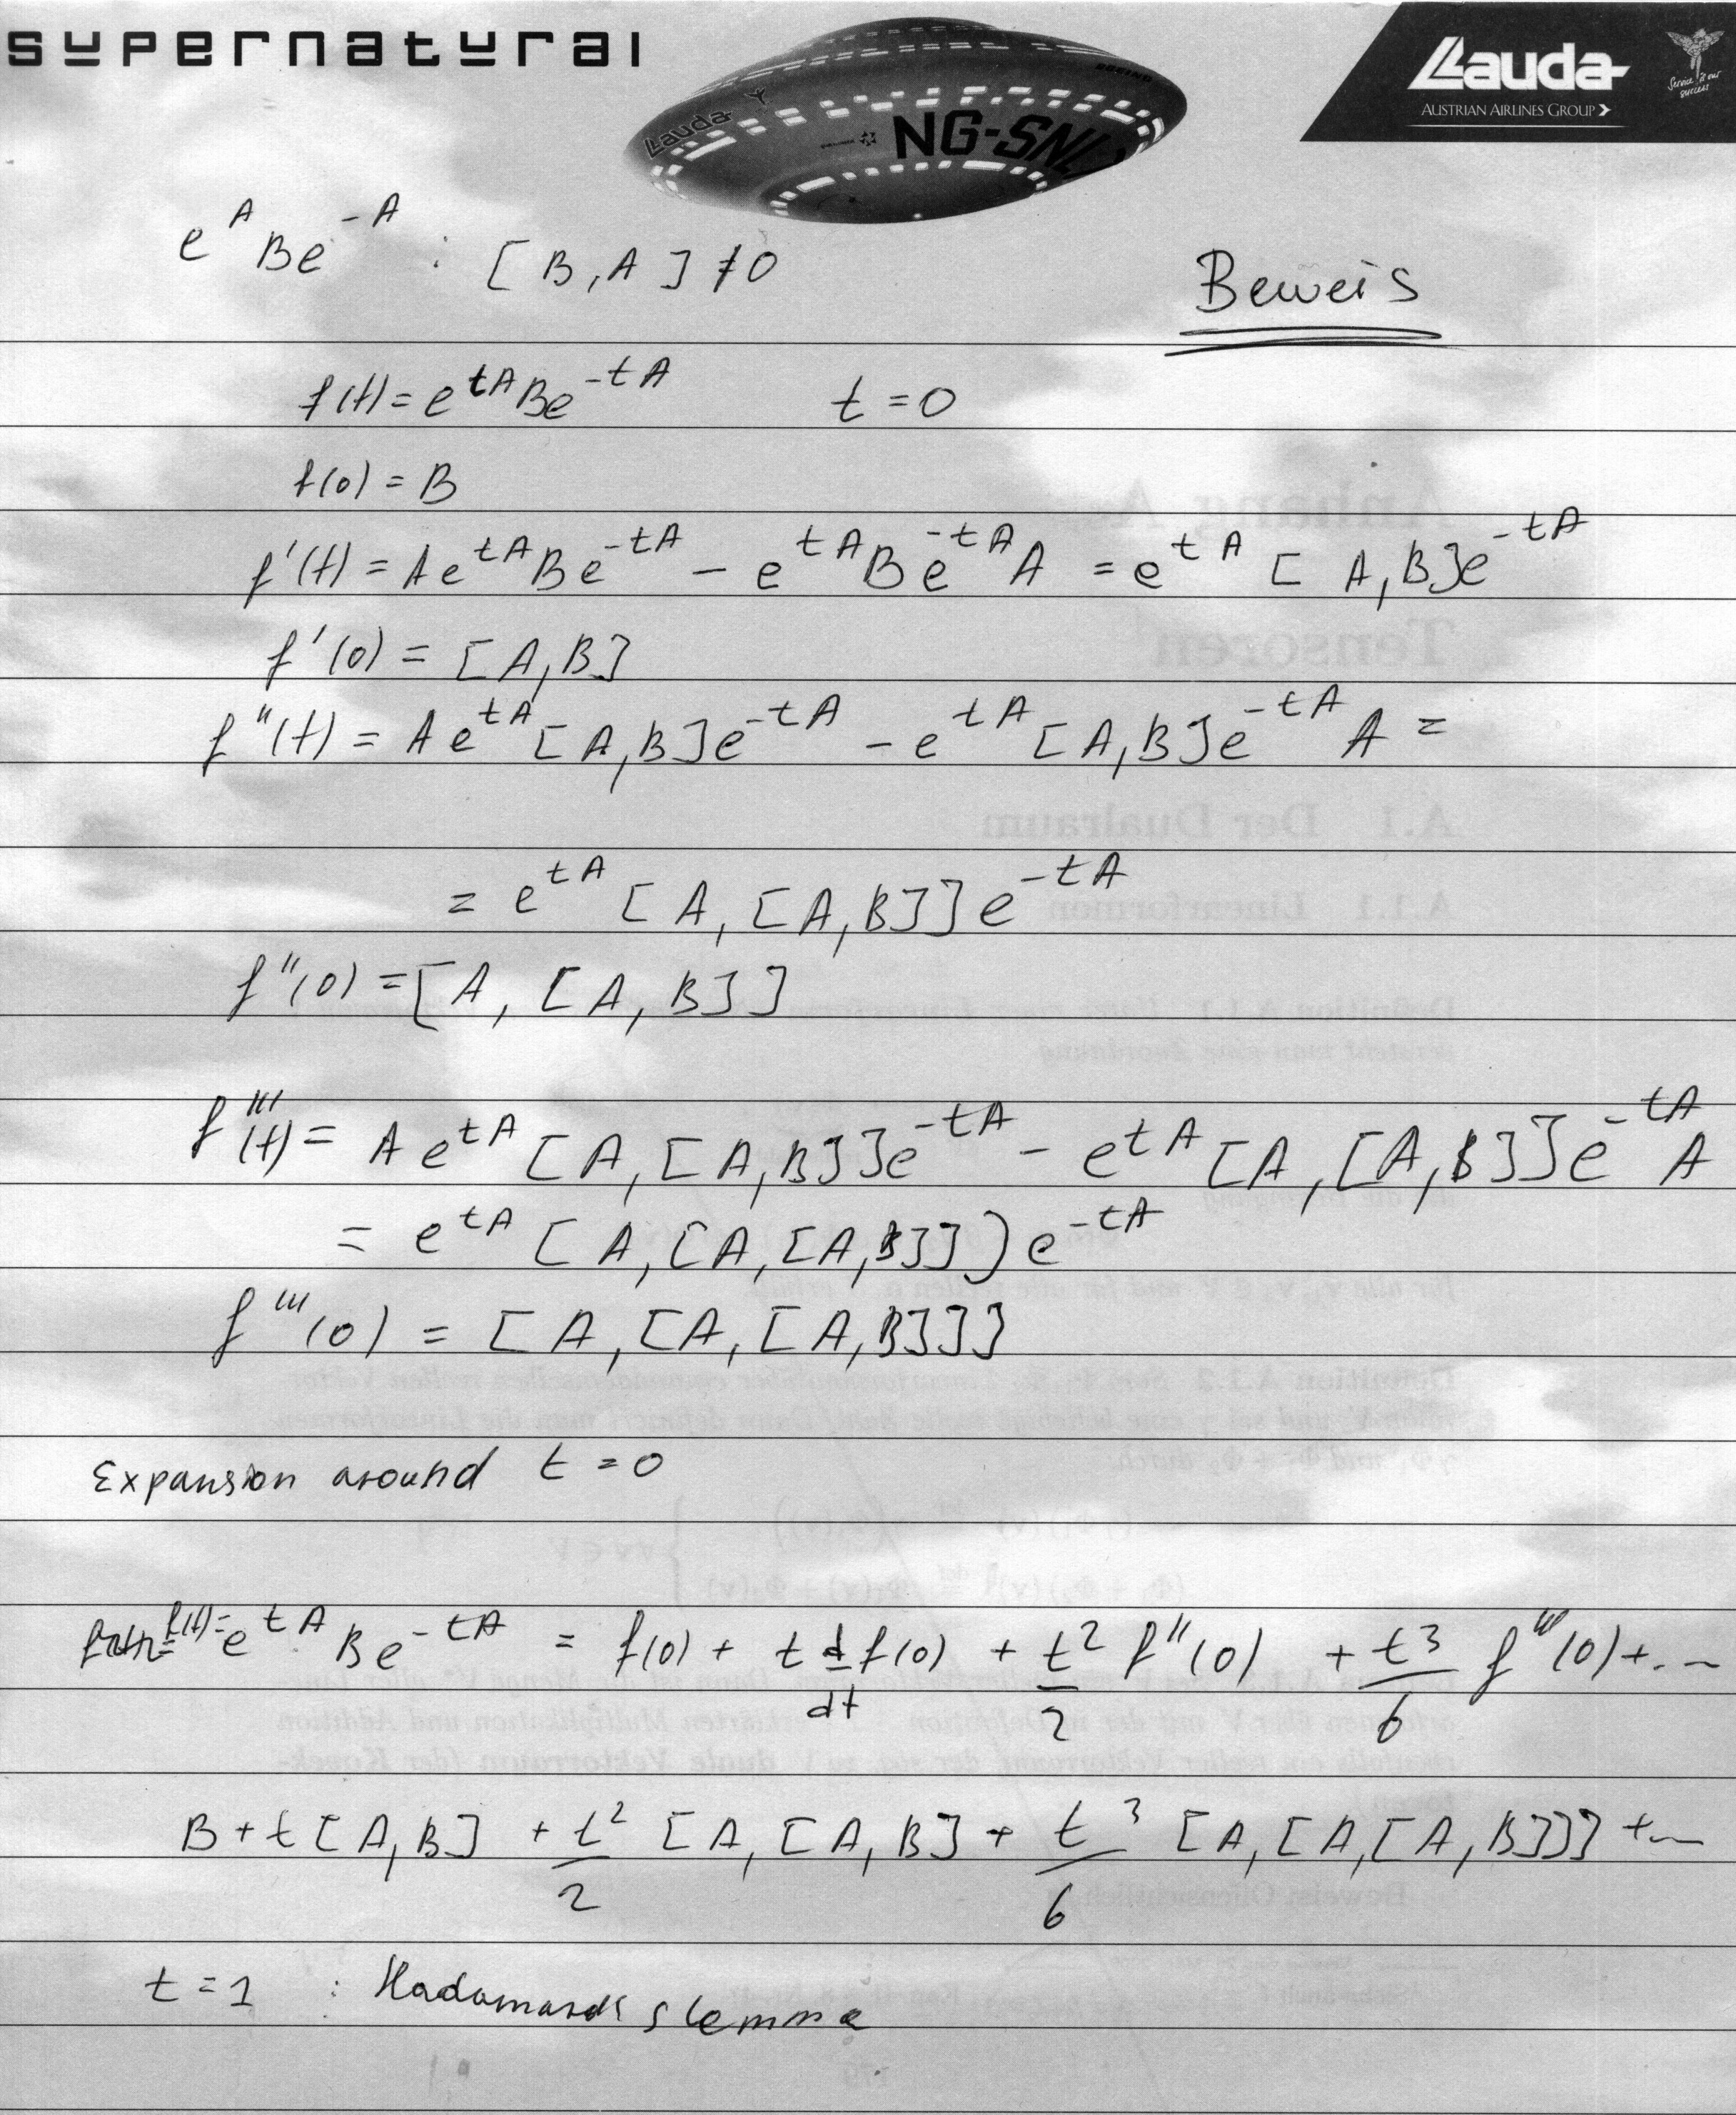 supernatural
Lauda
NG-SNL
BOEING
Lauda
Service is our success
AUSTRIAN AIRLINES GROUP >
e^A Be^-A : [B,A] ≠ 0
Beweis
f(t) = e^tA Be^-tA t = 0
f(0) = B
f'(t) = A e^tA B e^-tA - e^tA B e^-tA A = e^tA [A,B]e^-tA
f'(0) = [A,B]
f''(t) = A e^tA [A,B]e^-tA - e^tA [A,B]e^-tA A =
= e^tA [A,[A,B]]e^-tA
f''(0) = [A,[A,B]]
f'''(t) = A e^tA [A,[A,B]]e^-tA - e^tA [A,[A,B]]e^-tA A
= e^tA [A,[A,[A,B]]])e^-tA
f'''(0) = [A,[A,[A,B]]]
Expansion around t = 0
f(t) = e^tA Be^-tA = f(0) + t d/dt f(0) + t²/2 f''(0) + t³/6 f'''(0) + ...
B + t[A,B] + t²/2 [A,[A,B] + t³/6 [A,[A,[A,B]]] + ...
t = 1 : Hadamards lemma
Anhang A
Tensoren
A.1 Der Dualraum
A.1.1 Linearformen